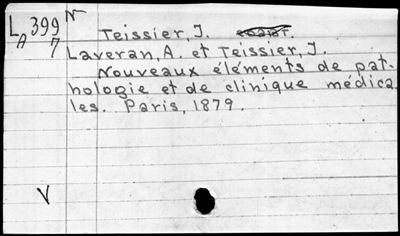 L 399 N Teissier, J.
A 7 Laveran, A. et Teissier, J.
Nouveaux éléments de pat-
hologie et de clinique médica
les. Paris, 1879.
V